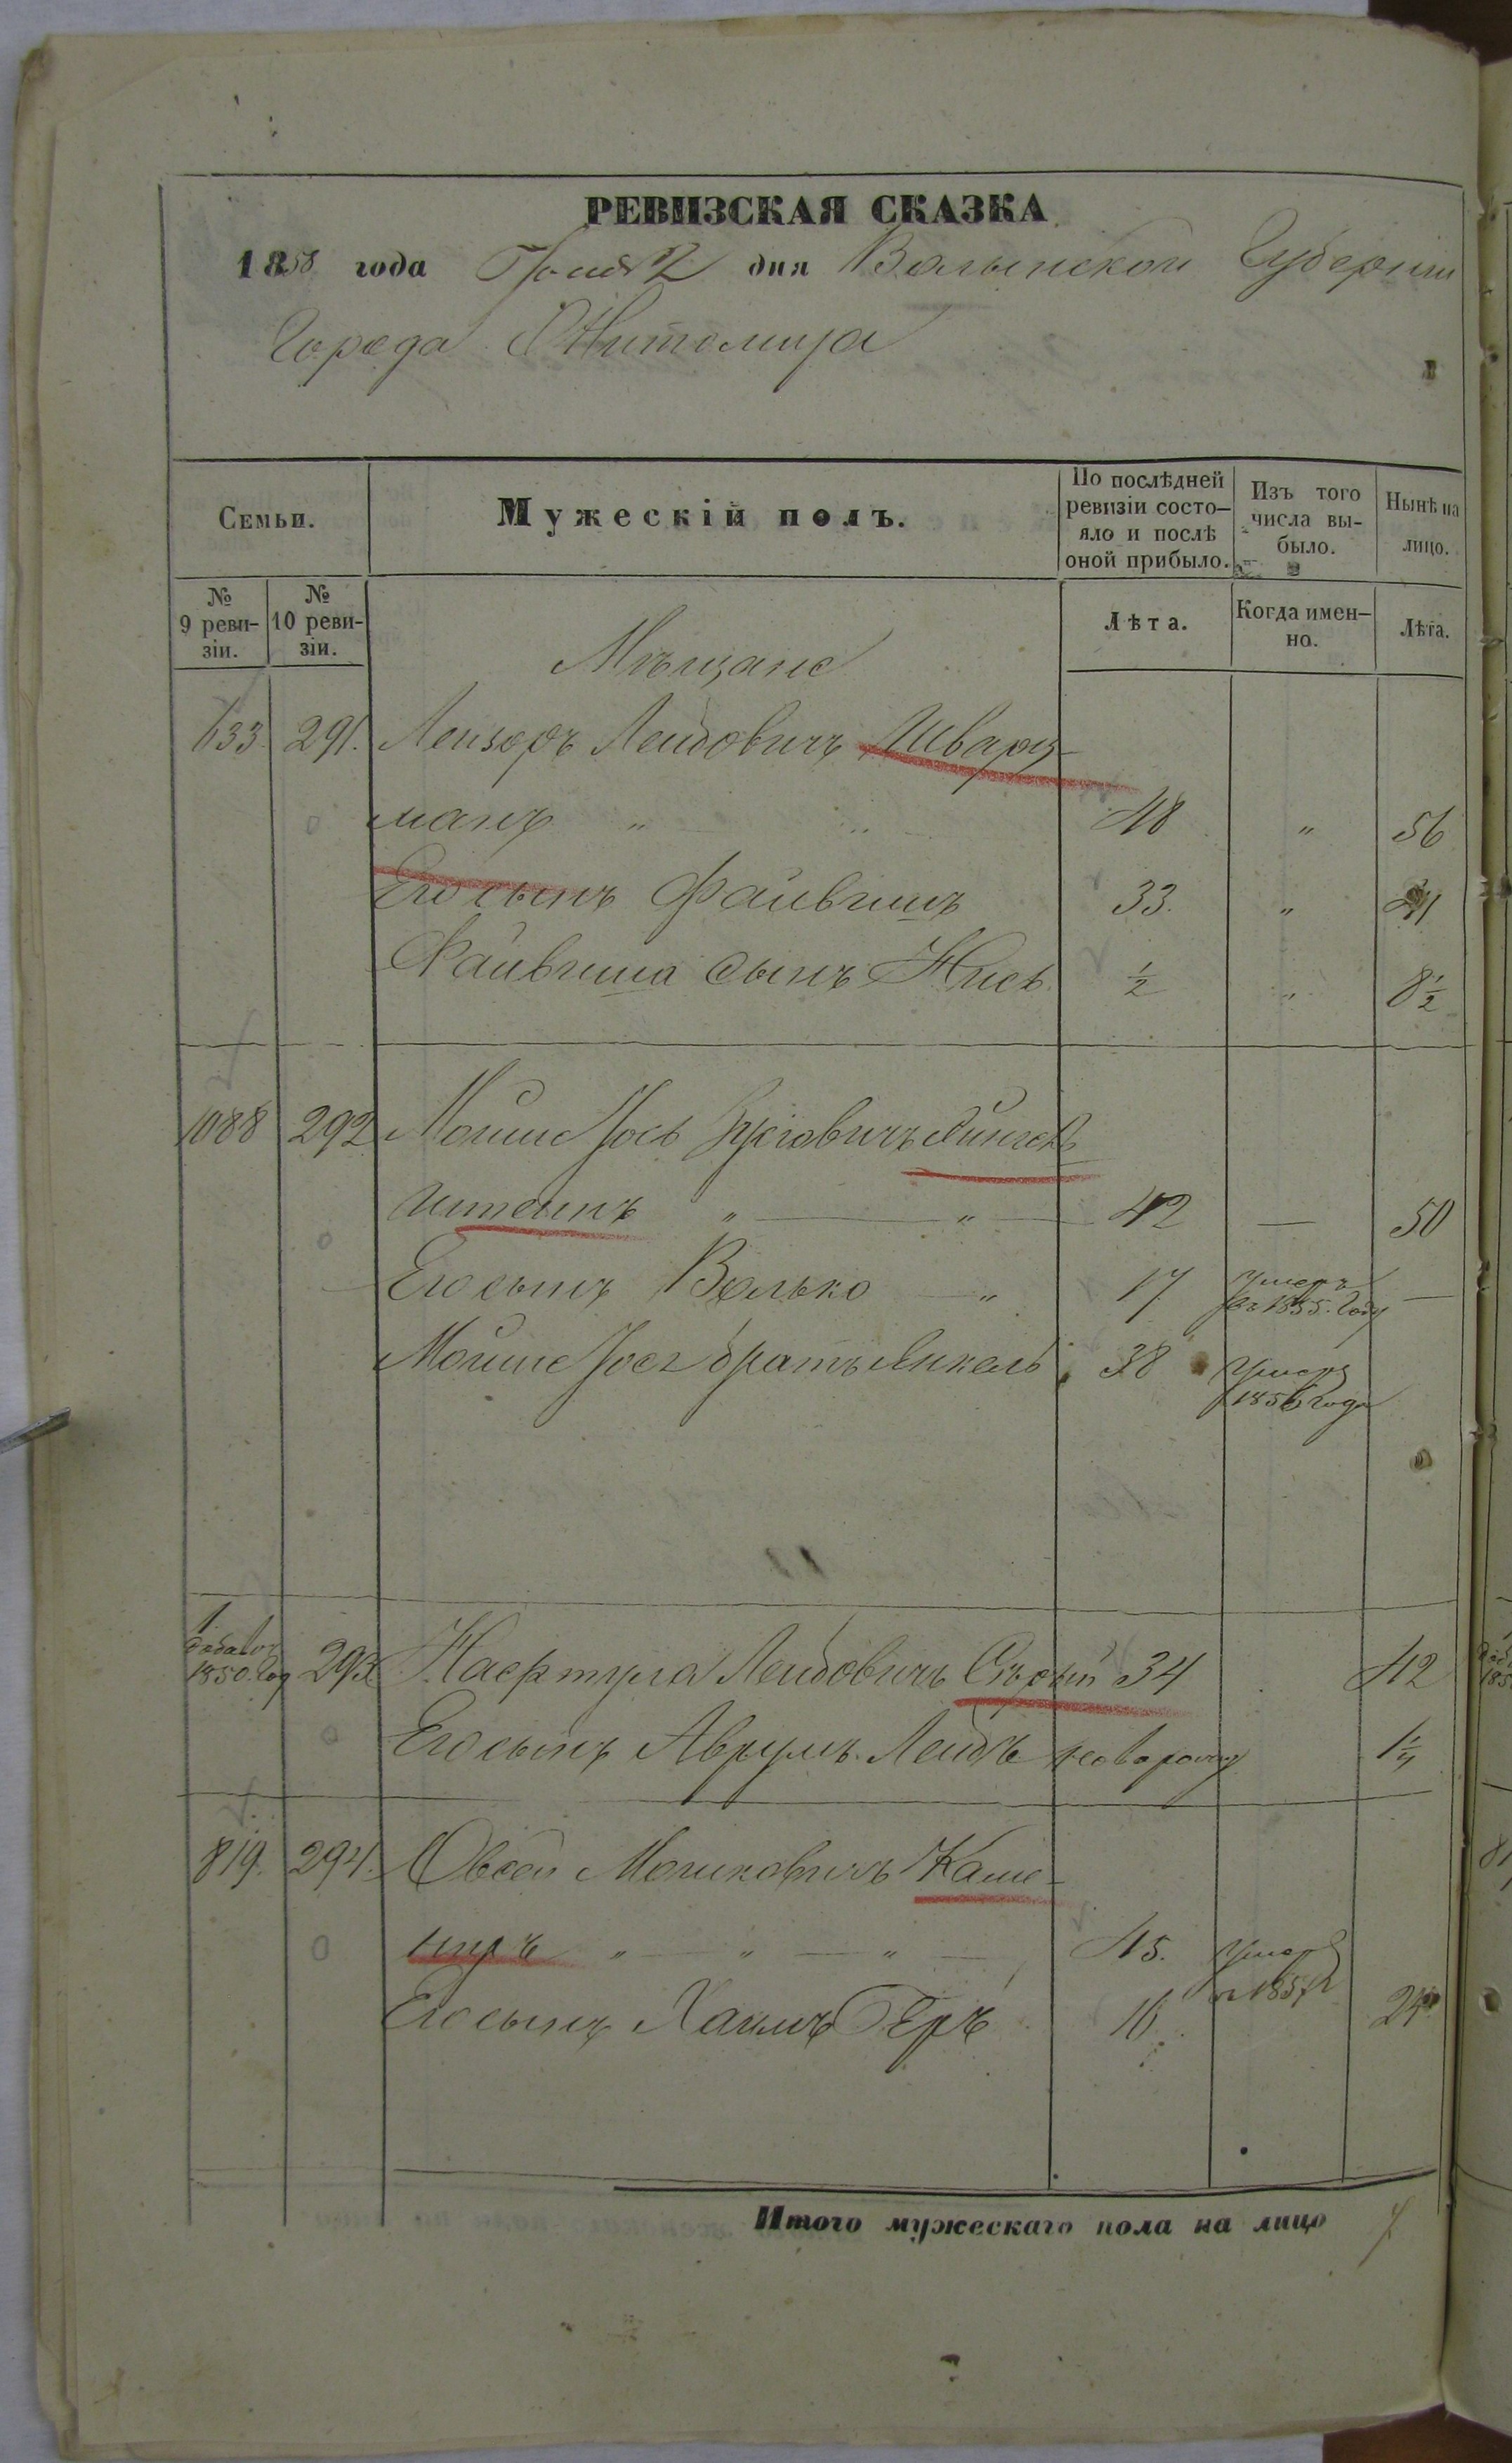 РЕВИЗСКАЯ СКАЗКА
1858 года Іюня 2 дня Волынской Губерніи
Города Житомира
Семьи.
Мужескій полъ.
По послѣдней ревизіи состо-
яло и послѣ
оной прибыло.
Изъ того
числа вы-
было.
Нынѣ на
лицо.
№
9 реви-
зіи.
№
10 реви-
зіи.
Лѣта.
Когда имен-
но.
Лѣта.
Мѣщане
633. 291. Лейзоръ Лейбовичъ Шварц-
манъ " 48 " 56
Его сынъ Файвишъ 33. " 41
Файвиша сынъ Нись ½ " 8½
1088 292 Мойше Іось
штейнъ " — " 42 — 50
Его сынъ Волько — " 17 умеръ
въ 1855. году —
Мойше Іося братъ Янкель 38 умеръ
1856 года
1850. год 293 Нафтула Лейбовичъ Сѣрый 34 42
Его сынъ Аврумъ Лейбъ новорож 1¼
819. 294. Овсей Мошковичъ Каме-
ниръ " — " — " — 45. умеръ
Его сынъ Хаимъ Беръ 16 24
Итого мужескаго пола на лицо 7